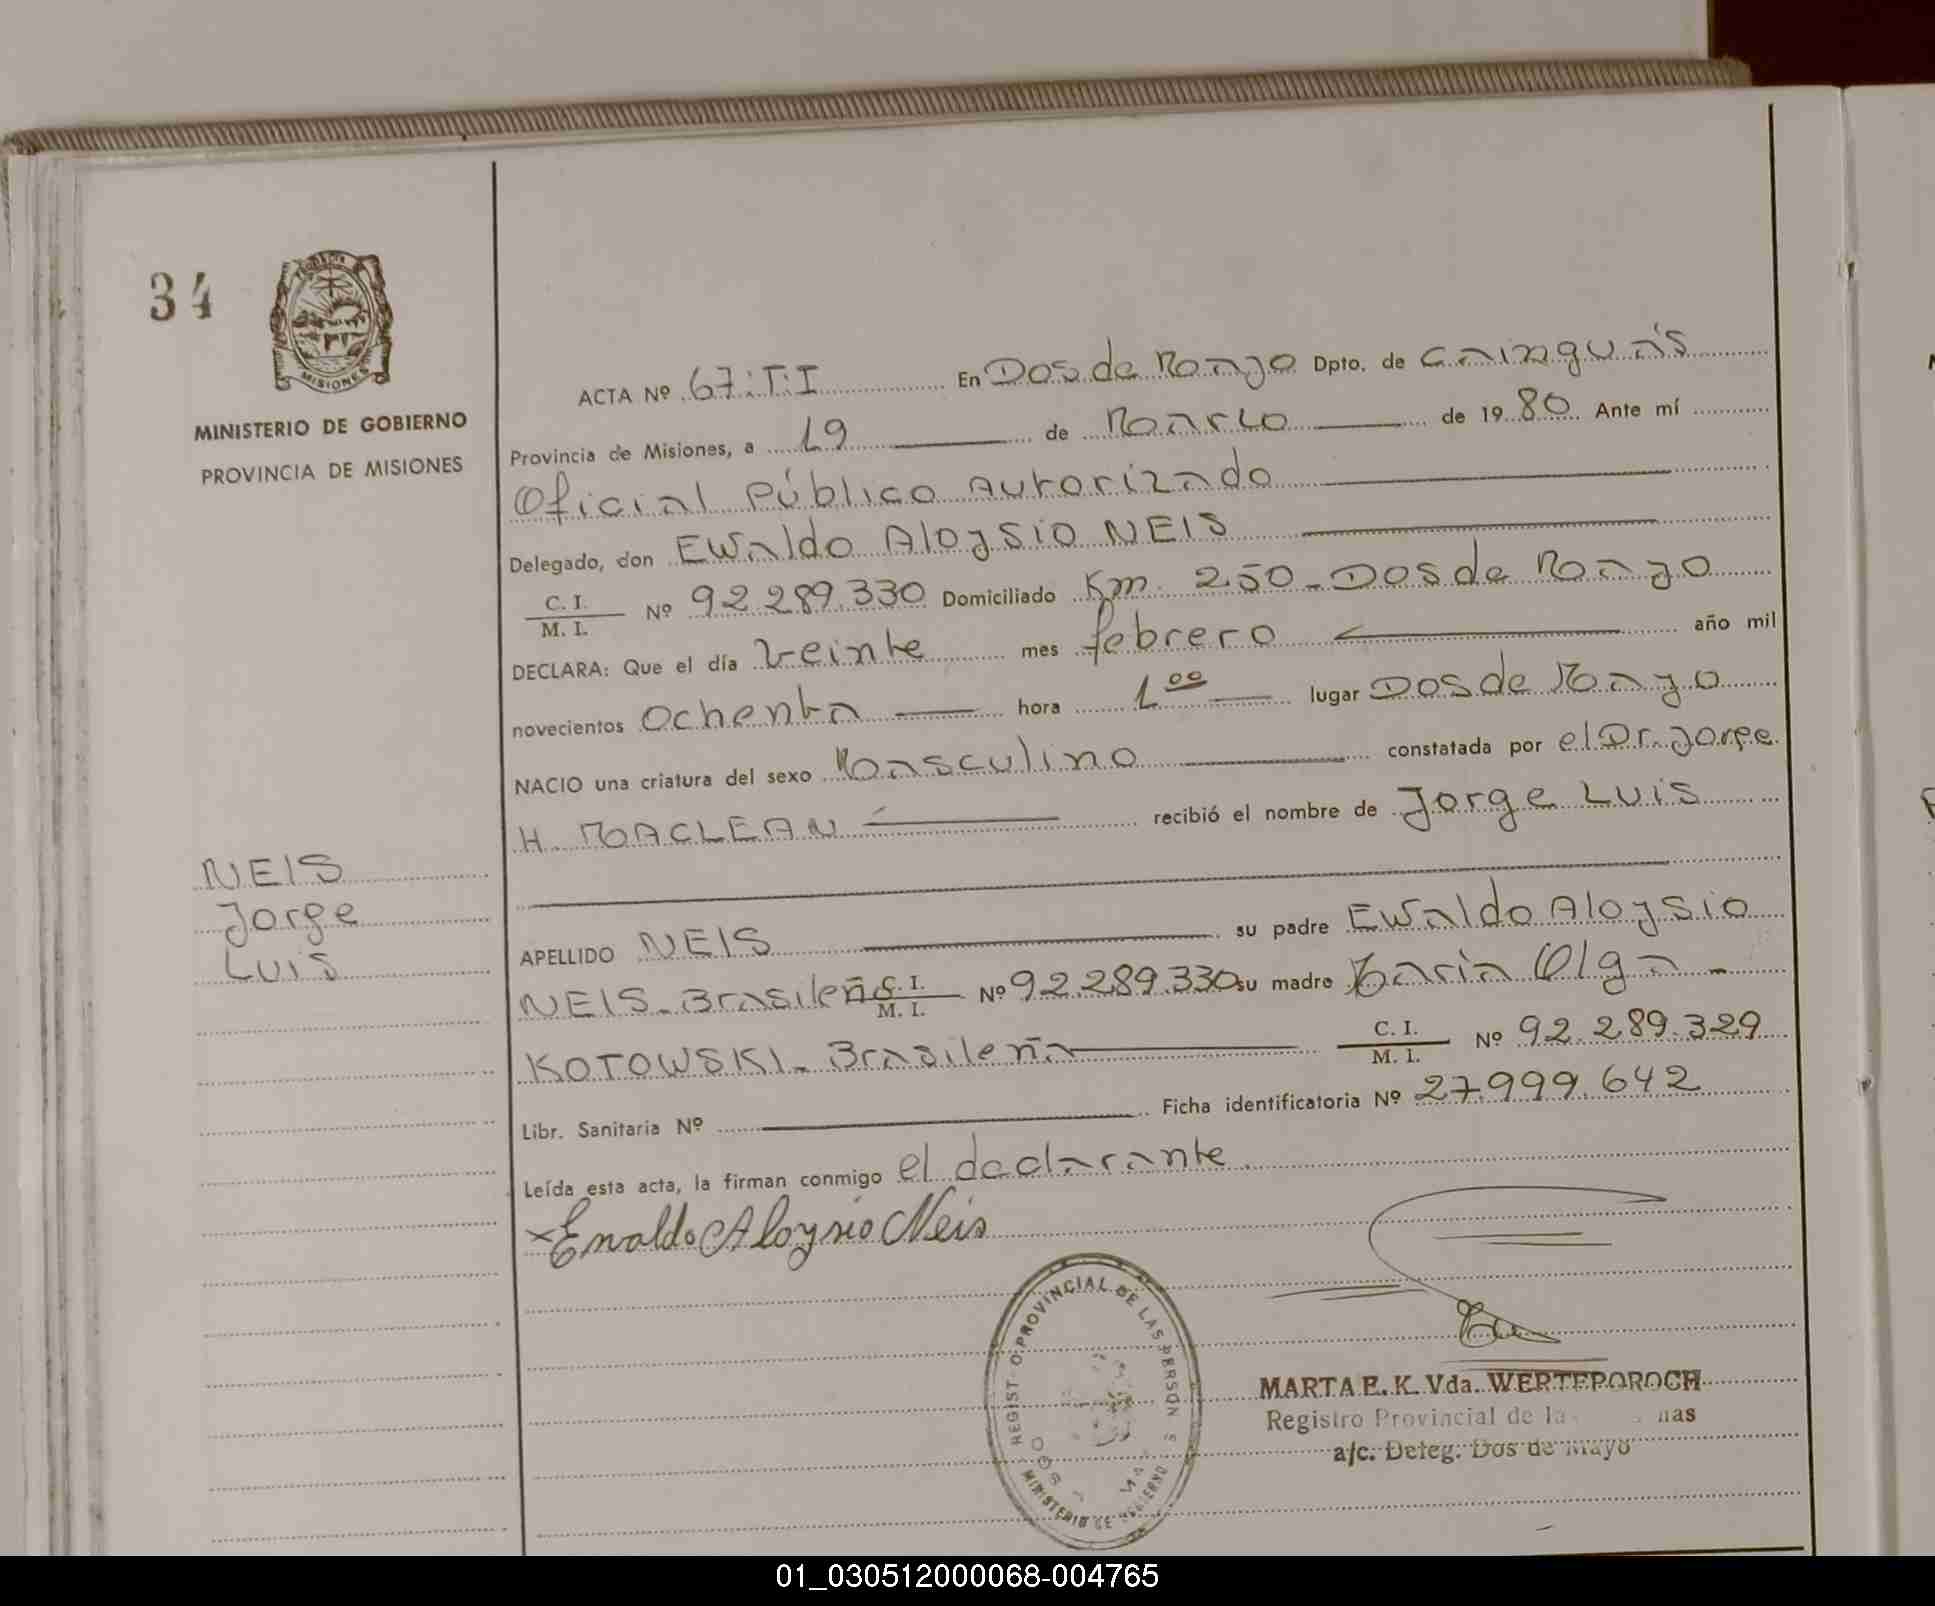 34
MISIONES
MINISTERIO DE GOBIERNO
PROVINCIA DE MISIONES
ACTA Nº 67:T:I En Dos de Mayo Dpto. de Cainguás
Provincia de Misiones, a 19 de Marzo de 1980 Ante mí
Oficial Público Autorizado
Delegado, don Ewaldo Aloysio NEIS
C. I.
M. I. Nº 92 289.330 Domiciliado Km. 250 - Dos de Mayo
DECLARA: Que el día veinte mes febrero año mil
novecientos ochenta hora 1 00 lugar Dos de Mayo
NACIO una criatura del sexo Masculino constatada por el Dr. Jorge
H. MACLEAN recibió el nombre de Jorge Luis
NEIS
Jorge
Luis
APELLIDO NEIS su padre Ewaldo Aloysio
NEIS - Brasileño C. I.
M. I. Nº 92.289.330 su madre María Olga -
KOTOWSKI - Brasileña C. I.
M. I. Nº 92.289.329
Libr. Sanitaria Nº Ficha identificatoria Nº 27.999.642
Leída esta acta, la firman conmigo el declarante.
x Ewaldo Aloysio Neis
REGISTRO PROVINCIAL DE LAS PERSONAS
MINISTERIO DE GOBIERNO
MARTA E. K. Vda. WERTEPOROCH
Registro Provincial de la nas
a/c. Deleg. Dos de Mayo
01_030512000068-004765